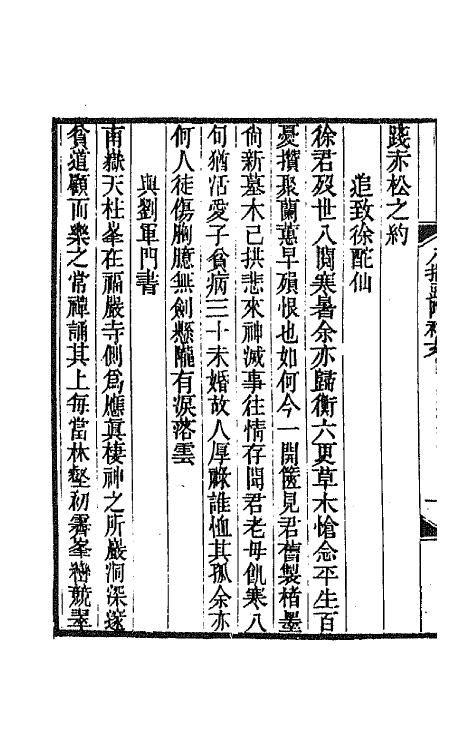 踐赤松之約
追致徐酡仙
徐君歿世八閱寒暑余亦歸衡六更草木愴念平生百
憂攢聚蘭蕙早殞恨也如何今一開篋見君舊製楮墨
尙新墓木已拱悲來神滅事往情存聞君老母飢寒八
旬猶活愛子貧病三十未婚故人厚祿誰恤其孤余亦
何人徒傷胸臆無劍懸隴有淚落雲
與劉軍門書
南嶽天柱峯在福嚴寺側爲應眞棲神之所嚴洞深邃
貧道顧而樂之常禪誦其上每當林壑初霽峯巒競翠
八指頭陀雜文